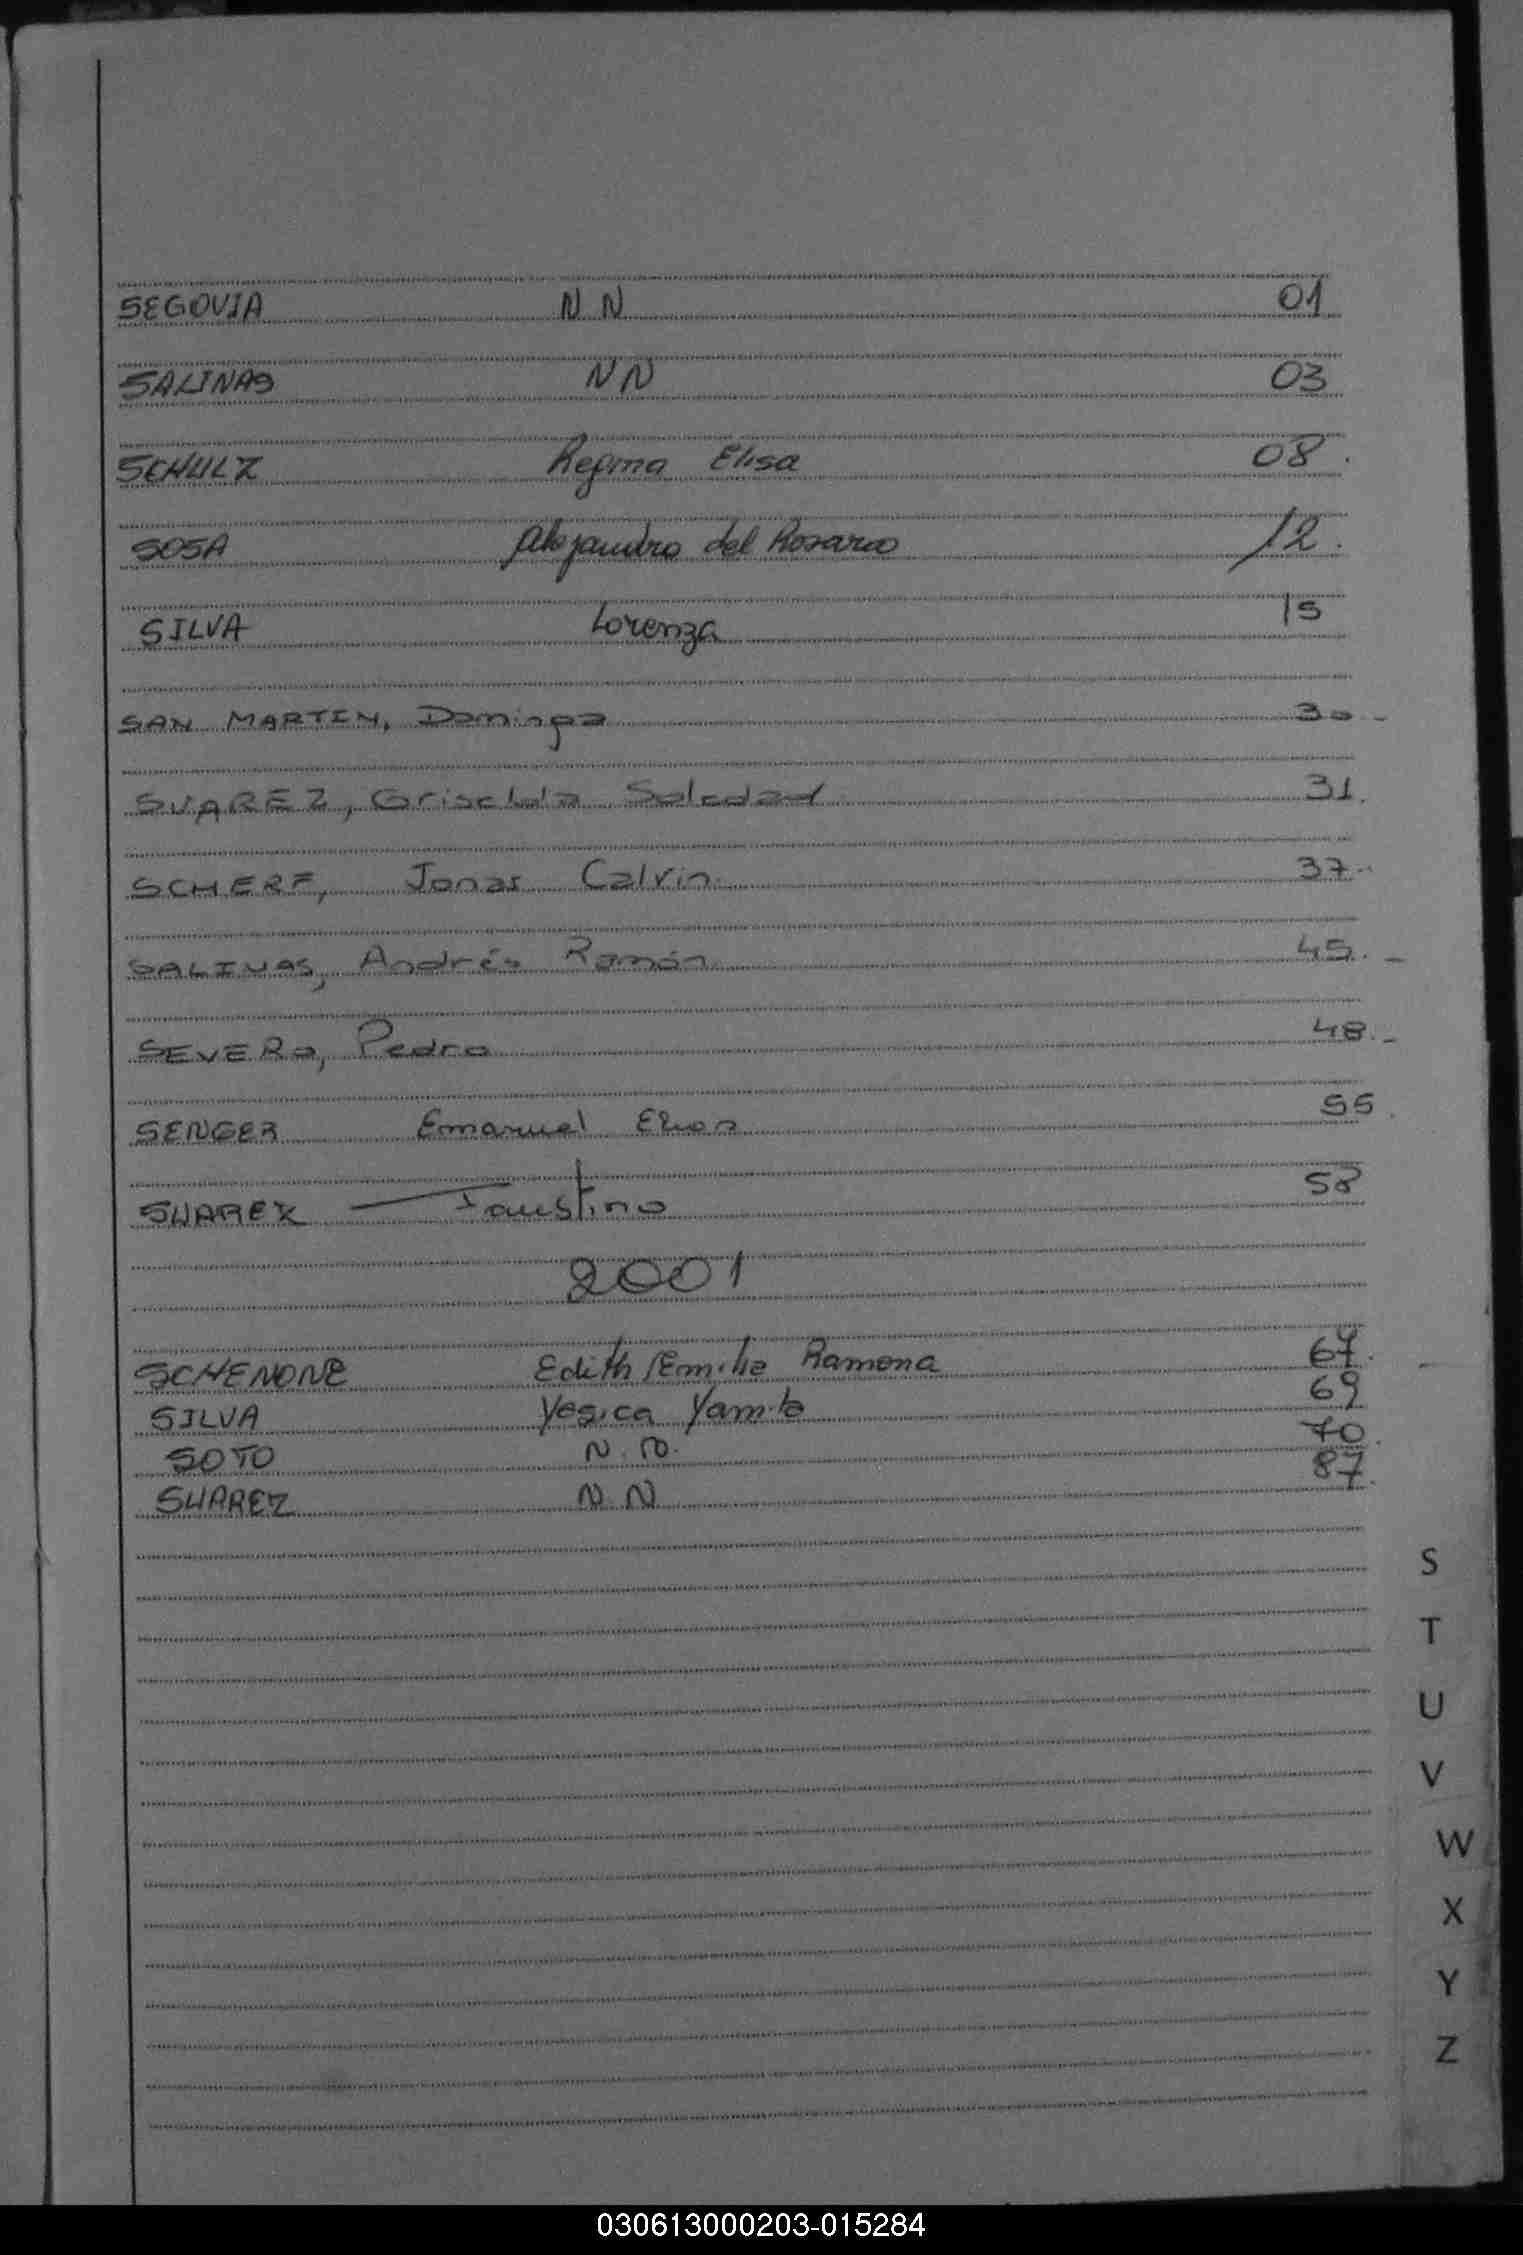 SEGOVIA N N 01
SALINAS NN 03
SCHULZ Regina Elisa 08.
SOSA Alejandro del Rosario 12.
SILVA Lorenza 15
SAN MARTIN, Dominga 30.-
SUAREZ, Griselda Soledad 31.
SCHERF, Jonas Calvin 37.-
SALINAS, Andrés Ramón 45.-
SEVERO, Pedro 48.-
SENGER Emanuel Elias 55.
SUAREZ Faustino 58
2001
SCHENONE Edith Emilie Ramona 67.
SILVA Yesica Yamile 69
SOTO N.N. 70.
SUAREZ N.N 87.
S
T
U
V
W
X
Y
Z
030613000203-015284